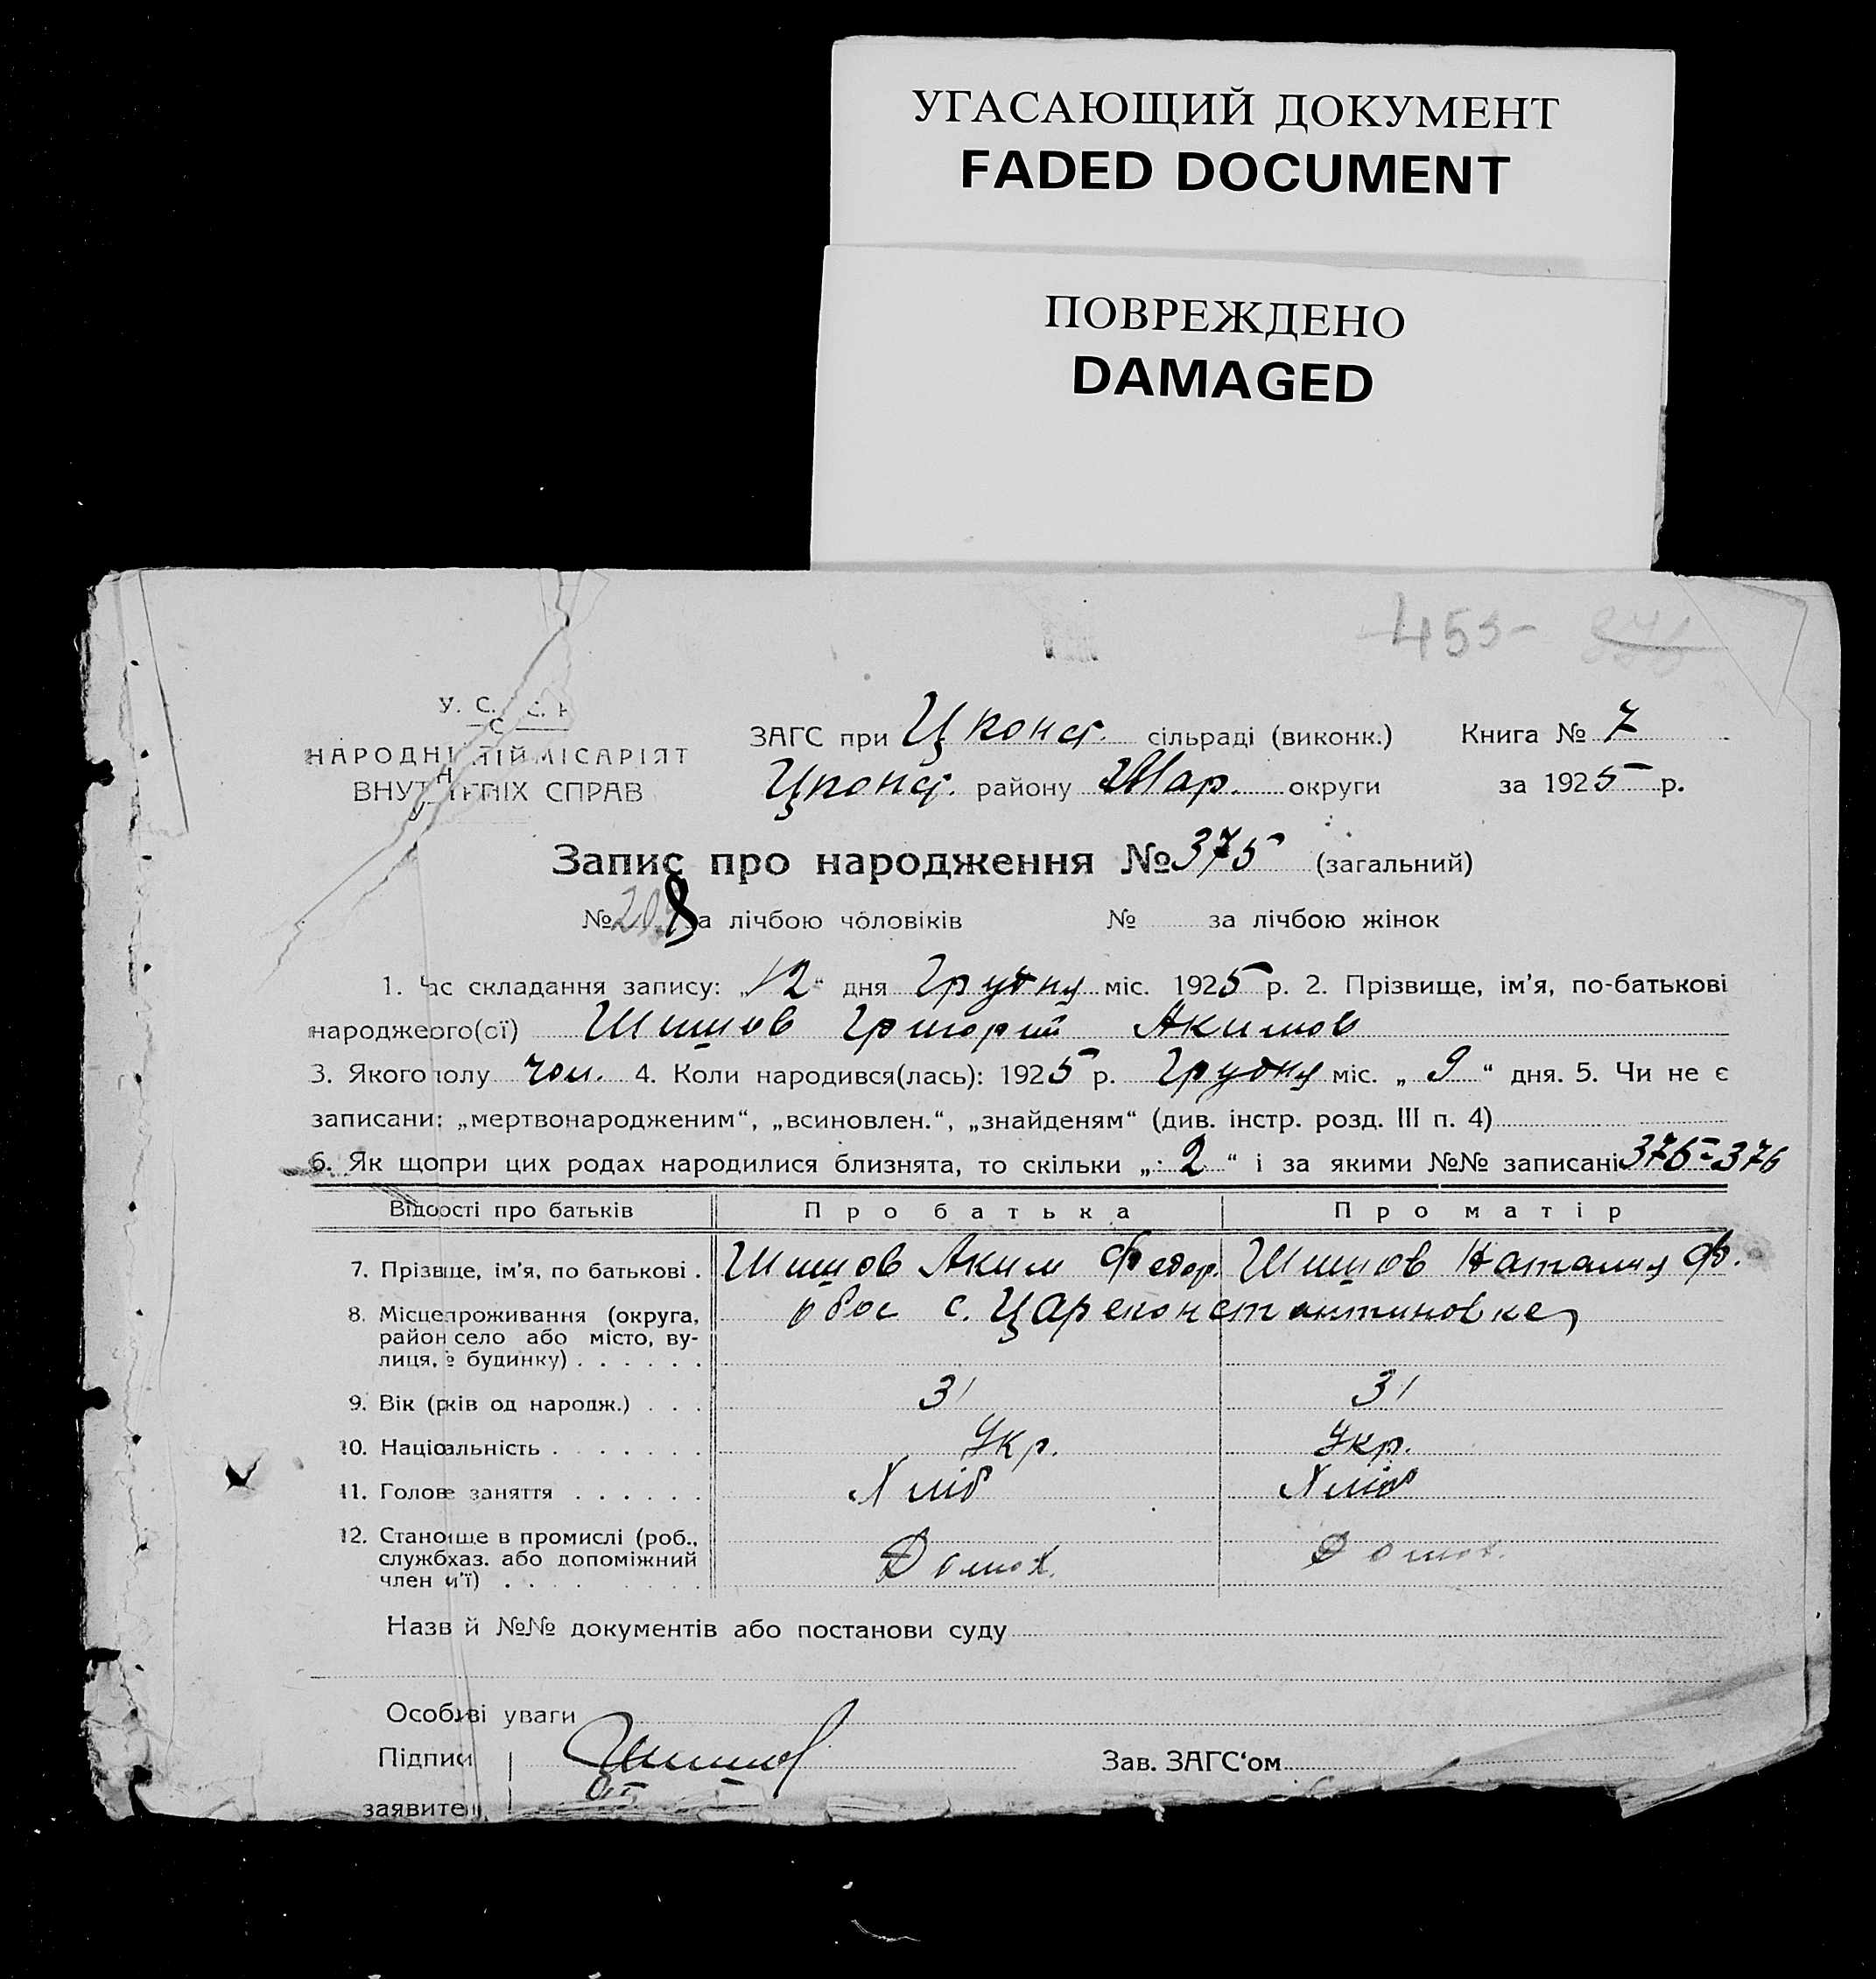 УГАСАЮЩИЙ ДОКУМЕНТ
FADED DOCUMENT
ПОВРЕЖДЕНО
DAMAGED
455-
У. С. С. Р.
НАРОДНІЙ КОМІСАРІЯТ
ВНУТРІШНІХ СПРАВ
ЗАГС при Цконст. сільраді (виконк.) Книга № 7
Цконст. району Мар. округи за 1925 р.
Запис про народження № 375 (загальний)
№ 208 за лічбою чоловіків № за лічбою жінок
1. Час складання запису: „12“ дня Грудня міс. 1925 р. 2. Прізвище, ім’я, по-батькові
народженого(ої) Шишов Григорий Акимов
3. Якого полу чол. 4. Коли народився(лась): 1925 р. Грудня міс. „9“ дня. 5. Чи не є
записани: „мертвонародженим“, „всиновлен.“, „знайденям“ (див. інстр. розд. III п. 4)
6. Як щопри цих родах народилися близнята, то скільки „2“ і за якими №№ записані 375-376
Відомості про батьків Про батька Про матір
7. Прізвище, ім’я, по батькові . Шишов Аким Федор. Шишов Наталия Ф.
8. Місце проживання (округа, обое с. Цареконстантиновке
район село або місто, ву-
лиця, № будинку) . . . . . .
9. Вік (років од народж.) . . . 31 31
10. Національність . . . . . . . Укр. Укр.
11. Голове заняття . . . . . . Хліб Хліб
12. Становище в промислі (роб., Домох. Домох.
служб. хаз. або допоміжний
член сім’ї) . . . .
Назви й №№ документів або постанови суду
Особливі уваги
Підписи Шишов Зав. ЗАГС‘ом
заявителі